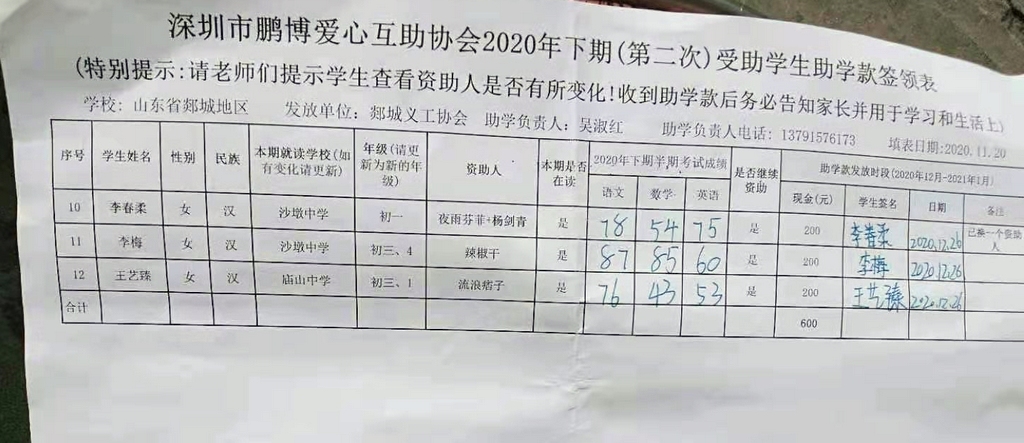 深圳市鹏博爱心互助协会2020年下期(第二次)受助学生助学款签领表
(特别提示:请老师们提示学生查看资助人是否有所变化!收到助学款后务必告知家长并用于学习和生活上)
学校: 山东省郯城地区 发放单位: 郯城义工协会 助学负责人: 吴淑红 助学负责人电话: 13791576173 填表日期:2020.11.20
序号 学生姓名 性别 民族 本期就读学校(如有变化请更新) 年级(请更新为新的年级) 资助人 本期是否在读 2020年下期半期考试成绩 是否继续资助 助学款发放时段(2020年12月-2021年1月)
语文 数学 英语 现金(元) 学生签名 日期 备注
10 李春柔 女 汉 沙墩中学 初一 夜雨芬菲+杨剑青 是 78 54 75 是 200 李春柔 2020.12.26 已换一个资助人
11 李梅 女 汉 沙墩中学 初三、4 辣椒干 是 87 85 60 是 200 李梅 2020.12.26
12 王艺臻 女 汉 庙山中学 初三、1 流浪痞子 是 76 43 53 是 200 王艺臻 2020.12.26
合计 600